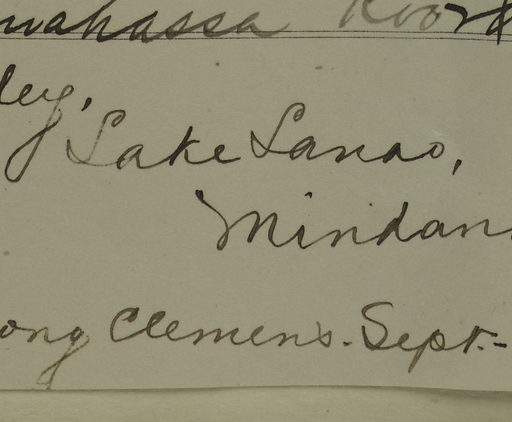 wahassa
ley,
Lake Lanao,
Mindan
ong Clemens. Sept.-